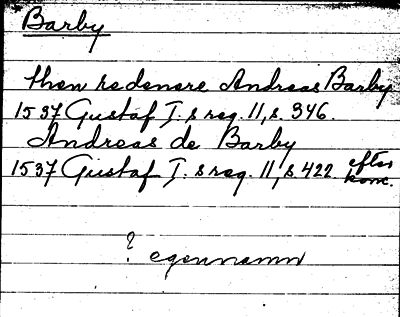 Barby
then redenere Andreas Barby
1537 Gustaf I. s reg. 11, s. 346.
Andreas de Barby
1537 Gustaf I. s reg. 11, s. 422 efter konc.
? egennamn